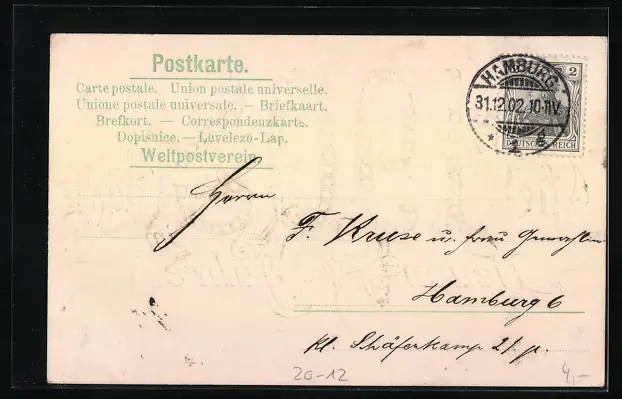 Postkarte.
Carte postale. Union postale universelle.
Unione postale universale. — Briefkaart.
Brefkort. — Correspondenzkarte.
Dopisnice. — Levelező-Lap.
Weltpostverein.
HAMBURG
31.12.02.10-11V.
2
DEUTSCHES REICH
Herrn
F. Kruse u. frau Gemahlin
Hamburg 6
kl. Schäferkamp 21. p.
20-12
4,-